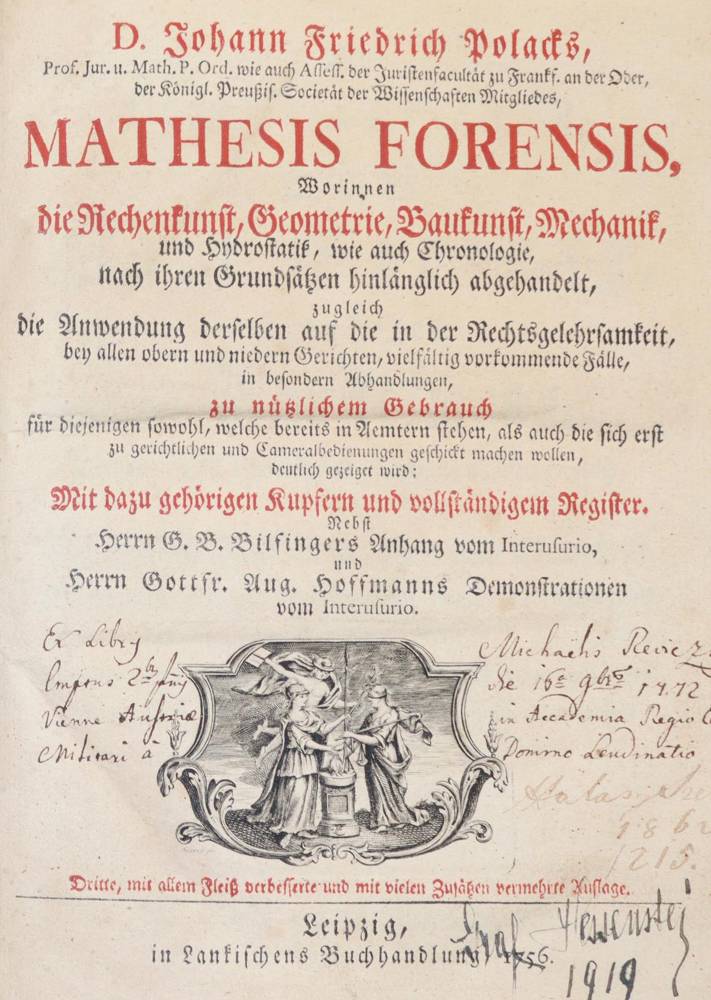 D. Johann Friedrich Polacks,
Prof. Jur. u. Math. P. Ord. wie auch Assess. der Juristenfacultät zu Frankf. an der Oder,
der Königl. Preußis. Societät der Wissenschaften Mitgliedes,
MATHESIS FORENSIS,
Worinnen
die Rechenkunst, Geometrie, Baukunst, Mechanik,
und Hydrostatik, wie auch Chronologie,
nach ihren Grundsätzen hinlänglich abgehandelt,
zugleich
die Anwendung derselben auf die in der Rechtsgelehrsamkeit,
bey allen obern und niedern Gerichten, vielfältig vorkommende Fälle,
in besondern Abhandlungen,
zu nützlichem Gebrauch
für diejenigen sowohl, welche bereits in Aemtern stehen, als auch die sich erst
zu gerichtlichen und Cameralbedienungen geschickt machen wollen,
deutlich gezeiget wird;
Mit dazu gehörigen Kupfern und vollständigem Register.
Nebst
Herrn G. B. Bilfingers Anhang vom Interusurio,
und
Herrn Gottfr. Aug. Hoffmanns Demonstrationen
vom Interusurio.
Ex Libry Michaëlis Reviczk
Emptus die 16e 9bris 1772
Vienne Austriæ in Accademia Regio
Militari à Domino
1862
1215.
Dritte, mit allem Fleiß verbesserte und mit vielen Zusätzen vermehrte Auflage.
Leipzig,
in Lankischens Buchhandlung, 1756.
Graf Hessenstein
1919